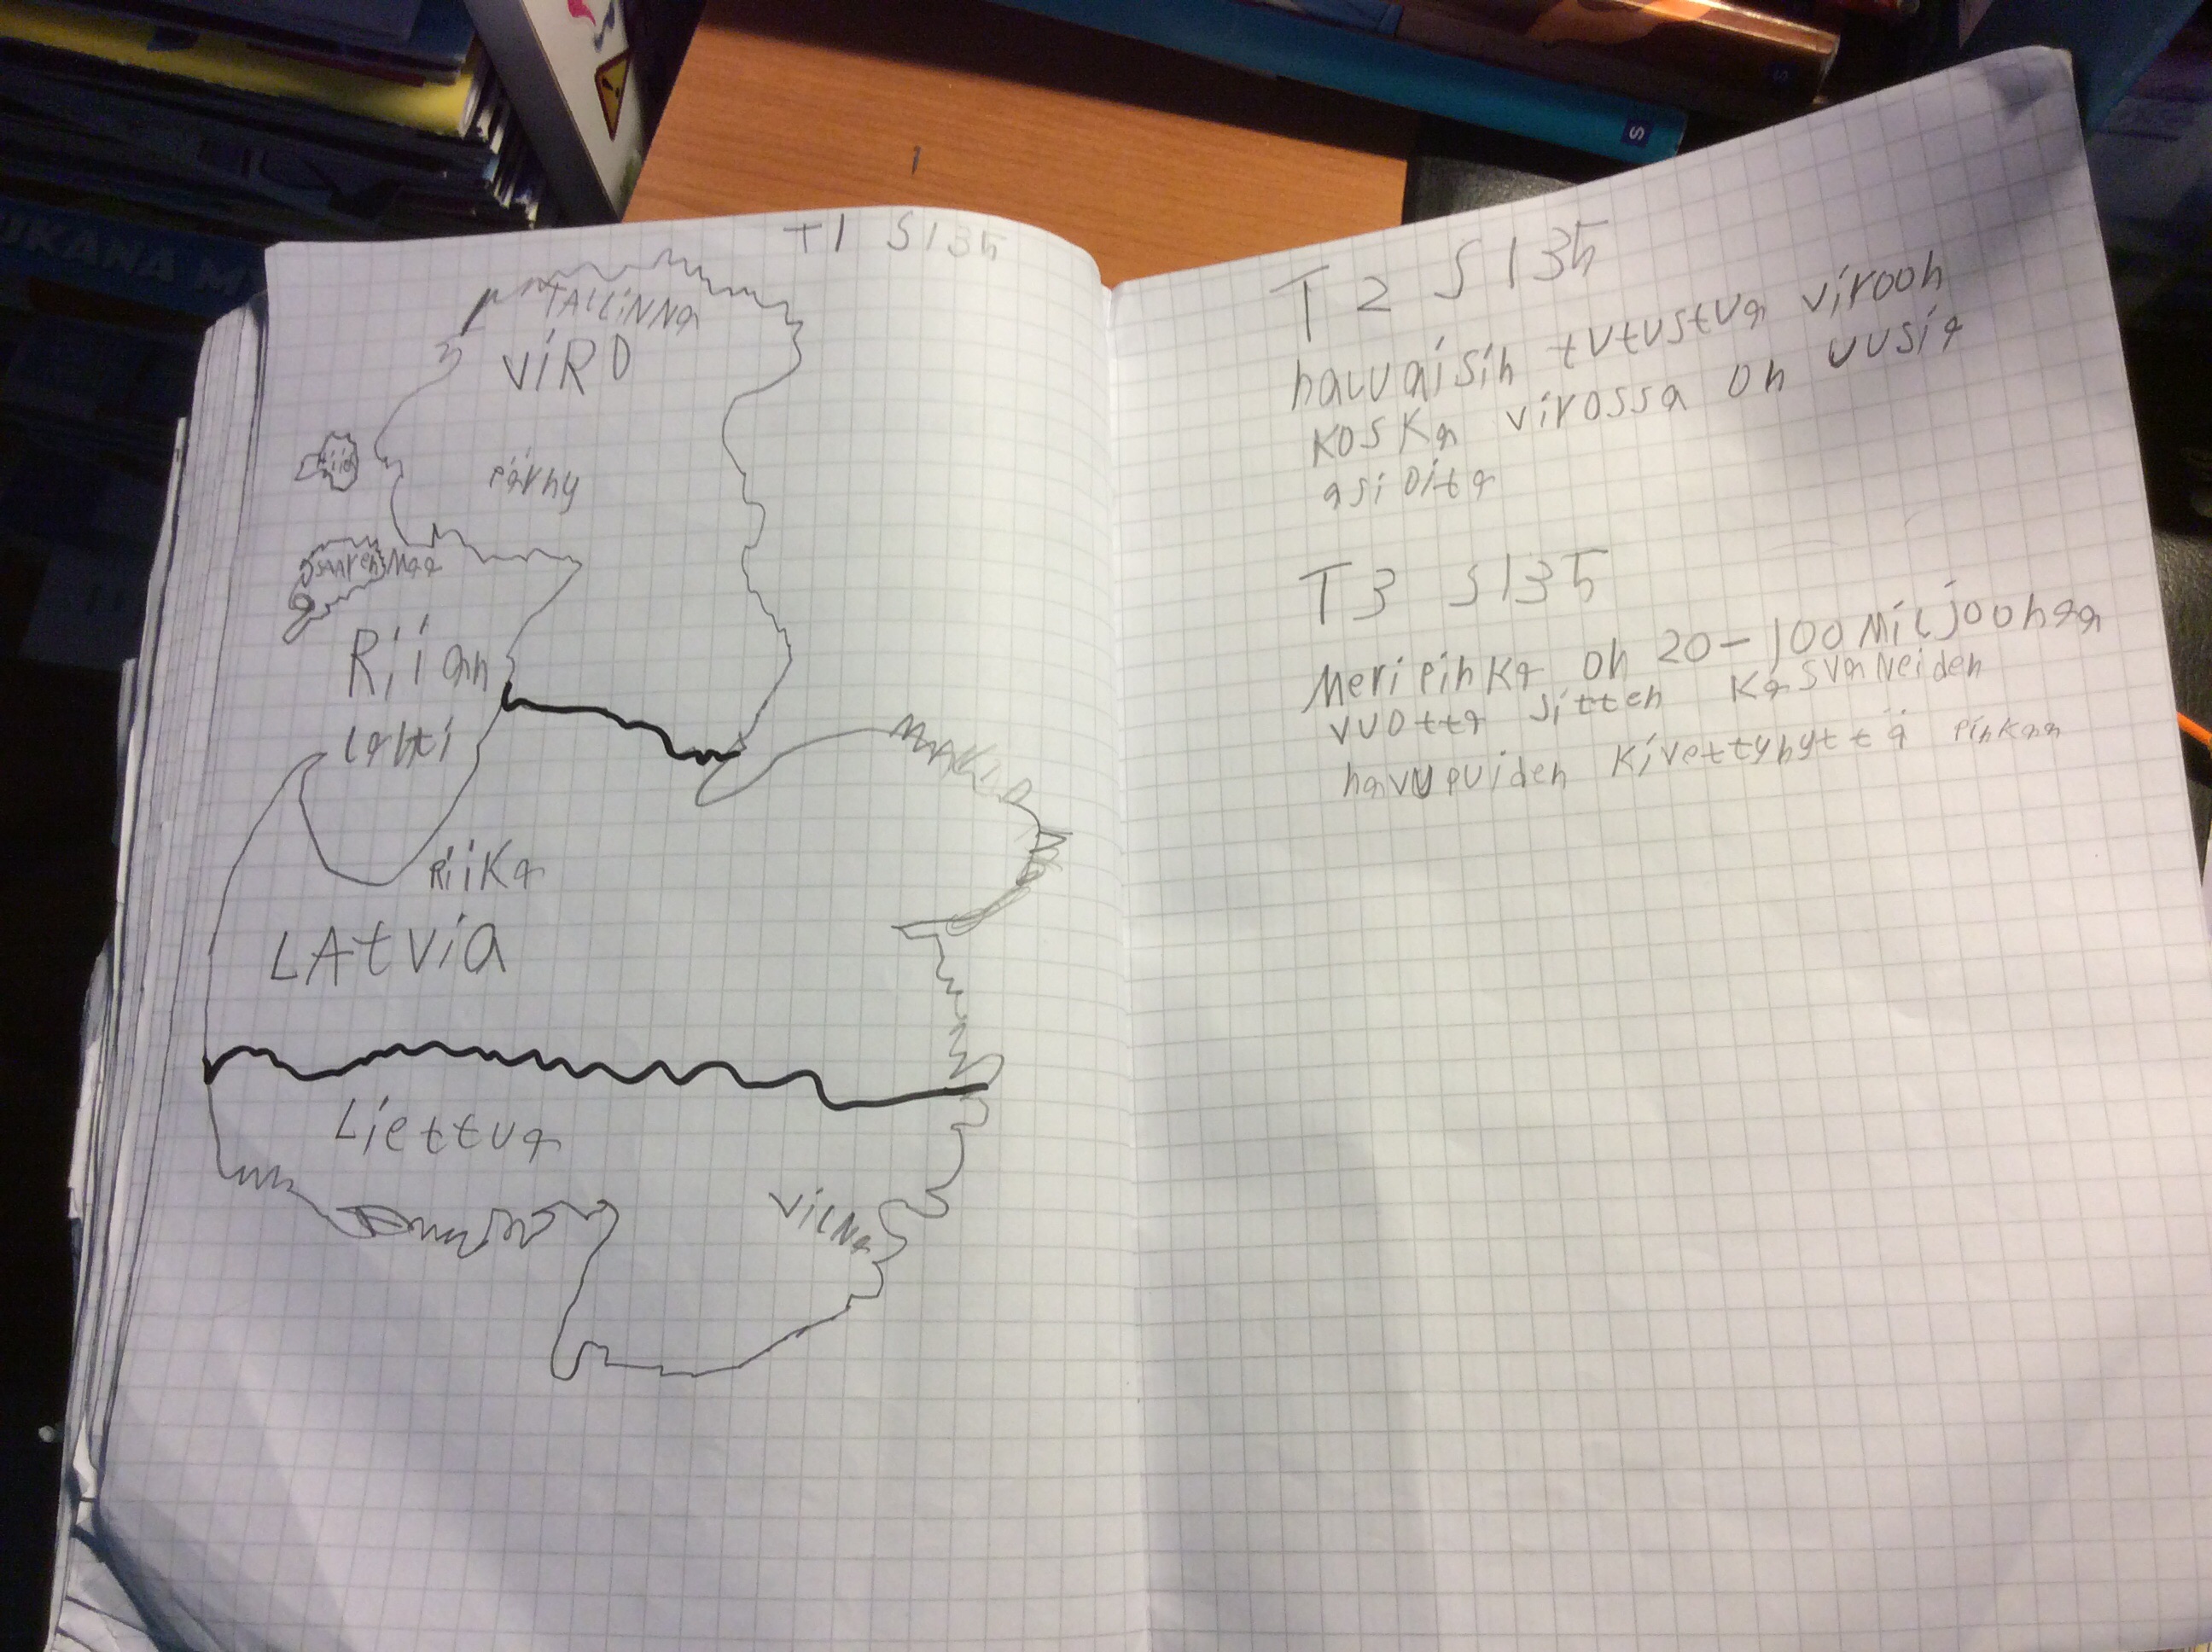 T1 S135
TALLiNNa
ViRO
Pärny
SaarenMaa
Riian
lahti
Riika
LAtvia
Liettua
ViLNa
T2 S135
haluaisin tutustua viroon
koska virossa on uusia
asioita
T3 S135
Meripihka on 20-100 Miljoonaa
vuotta sitten KasvaNeiden
havupuiden Kivettynyttä pihkaa
S
UKANA M